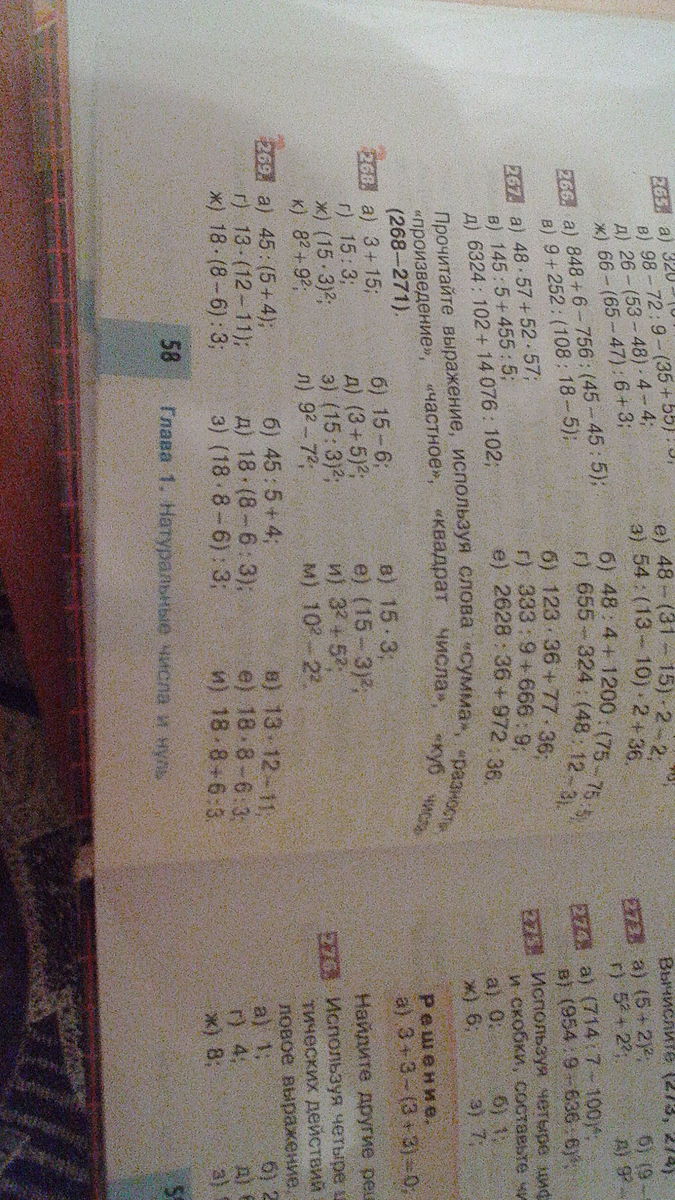 265.
в) 98 – 72 : 9 – (35 + 55) : 5;
е) 48 – (31 – 15) · 2 – 2;
д) 26 – (53 – 48) · 4 – 4;
з) 54 : (13 – 10) · 2 + 36.
ж) 66 – (65 – 47) : 6 + 3;
266. а) 848 + 6 – 756 : (45 – 45 : 5);
б) 48 : 4 + 1200 : (75 – 75 : 5);
в) 9 + 252 : (108 : 18 – 5);
г) 655 – 324 : (48 : 12 – 3).
267. а) 48 · 57 + 52 · 57;
б) 123 · 36 + 77 · 36;
в) 145 : 5 + 455 : 5;
г) 333 : 9 + 666 : 9;
д) 6324 : 102 + 14 076 : 102;
е) 2628 : 36 + 972 : 36.
Прочитайте выражение, используя слова «сумма», «разность»,
«произведение», «частное», «квадрат числа», «куб числа»
(268—271).
268. а) 3 + 15; б) 15 – 6; в) 15 · 3;
г) 15 : 3; д) (3 + 5)²; е) (15 – 3)²;
ж) (15 · 3)²; з) (15 : 3)²; и) 3² + 5²;
к) 8² + 9²; л) 9² – 7²; м) 10² – 2².
269. а) 45 : (5 + 4); б) 45 : 5 + 4; в) 13 · 12 – 11;
г) 13 · (12 – 11); д) 18 · (8 – 6 : 3); е) 18 · 8 – 6 : 3;
ж) 18 · (8 – 6) : 3; з) (18 · 8 – 6) : 3; и) 18 · 8 + 6 : 3
58 Глава 1. Натуральные числа и нуль
Вычислите (273, 274).
273. а) (5 + 2)²; б) (9
г) 5² + 2²; д) 9²
274. а) (714 : 7 – 100)⁴;
в) (954 : 9 – 636 : 6)⁸;
275. Используя четыре
и скобки, составьте
а) 0; б) 1;
ж) 6; з) 7;
Решение.
а) 3 + 3 – (3 + 3) = 0;
Найдите другие
276. Используя четыре
тических действий
ловое выражение,
а) 1; б) 2
г) 4; д)
ж) 8; з)